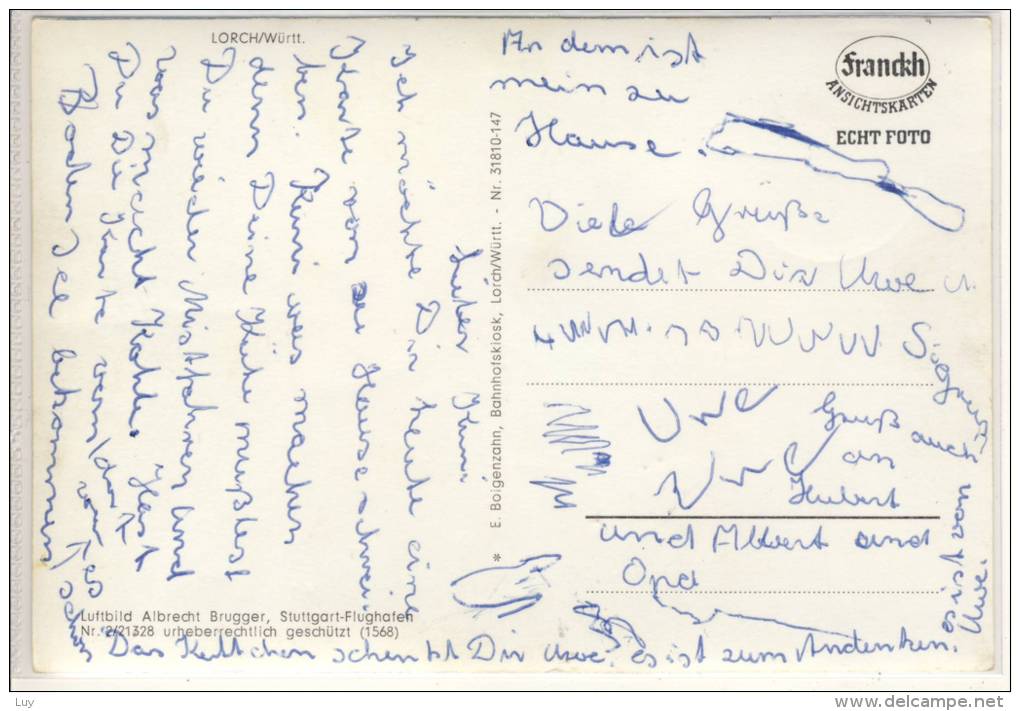 LORCH/Württ.
Lieber Kuni.
Ich möchte Dir heute eine
Karte von zu Hause schrei-
ben. Kuni was machen
denn Deine Kühe mußtest
Du wieder Mistfahren und
was macht Kohle. Hast
Du Die Karte vom
Boden See bekommen
E. Boigenzahn, Bahnhofskiosk, Lorch/Württ. - Nr. 31810-147
*
An dem ist
mein zu
Hause.
Franckh
ANSICHTSKARTEN
ECHT FOTO
Viele Grüße
sendet Dir Uwe u
Siegrun
Uwe
Gruß auch
an
Hubert
und Albert und
Opa
Luftbild Albrecht Brugger, Stuttgart-Flughafen
Nr. 2/21328 urheberrechtlich geschützt (1568)
Das Kettchen schenkt Dir Uwe. es ist zum Andenken.
es ist von
Uwe.
Luy
www.delcampe.net